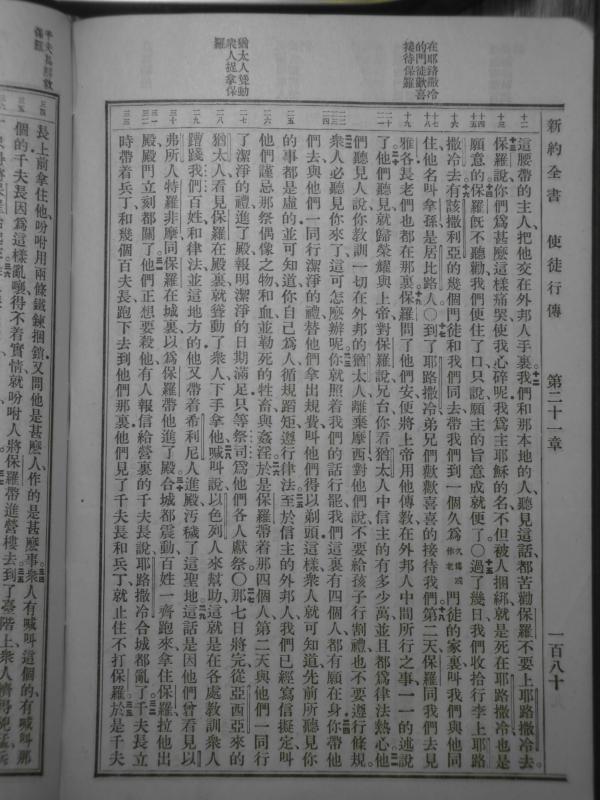 新約全書　使徒行傳　第二十一章　一百八十
在耶路撒冷
的門徒歡喜
接待保羅
猶太人聳動
衆人捉拿保
羅
這腰帶的主人把他交在外邦人手裏我們和那本地的人、聽見這話都苦勸保羅不要上耶路撒冷去
保羅說你們爲甚麼這樣痛哭使我心碎呢我爲主耶穌的名不但被人捆綁就是死在耶路撒冷也是
願意的保羅旣不聽勸我們便住了口只說願主的旨意成就便了〇過了幾日我們收拾行李上耶路
撒冷去有該撒利亞的幾個門徒和我們同去帶我們到一個久爲門徒的家裏叫我們與他同
住他名叫拿孫是居比路人〇到了耶路撒冷弟兄們歡歡喜喜的接待我們第二天保羅同我們去見
雅各長老們也都在那裏保羅問了他們安便將上帝用他傳教在外邦人中間所行之事一一的述說
了他們聽見就歸榮耀與上帝對保羅說兄台你看猶太人中信主的有多少萬並且都爲律法熱心他
們聽見人說你教訓一切在外邦的猶太人離棄摩西對他們說不要給孩子行割禮也不要遵行條規
衆人必聽見你來了這可怎麼辦呢你就照着我們的話行罷我們這裏有四個人都有願在身你帶他
們去與他們一同行潔淨的禮替他們拿出規費叫他們得以剃頭這樣衆人就可知道先前所聽見你
的事都是虛的並可知道你自己爲人循規蹈矩遵行律法至於信主的外邦人我們已經寫信擬定叫
他們謹忌那祭偶像之物和血並勒死的牲畜與姦淫於是保羅帶着那四個人第二天與他們一同行
了潔淨的禮進了殿報明潔淨的日期滿足只等祭司爲他們各人獻祭〇那七日將完從亞西亞來的
猶太人看見保羅在殿裏就聳動了衆人下手拿他喊叫說以色列人來幫助這就是在各處教訓衆人
蹧踐我們百姓和律法並這地方的他又帶着希利尼人進殿汚穢了這聖地這話是因他們曾看見以
弗所人特羅非摩同保羅在城裏以爲保羅帶他進了殿合城都震動百姓一齊跑來拿住保羅拉他出
殿殿門立刻都關了他們正想要殺他有人報信給營裏的千夫長說耶路撒冷合城都亂了千夫長立
時帶着兵丁和幾個百夫長跑下去到他們那裏他們見了千夫長和兵丁就止住不打保羅於是千夫
長上前拿住他吩咐用兩條鐵鍊捆鎖又問他是甚麼人作的是甚麼事衆人有喊叫這個的有喊叫那
個的千夫長因爲這樣亂嚷得不着實情就吩咐人將保羅帶進營樓去到了臺階上衆人